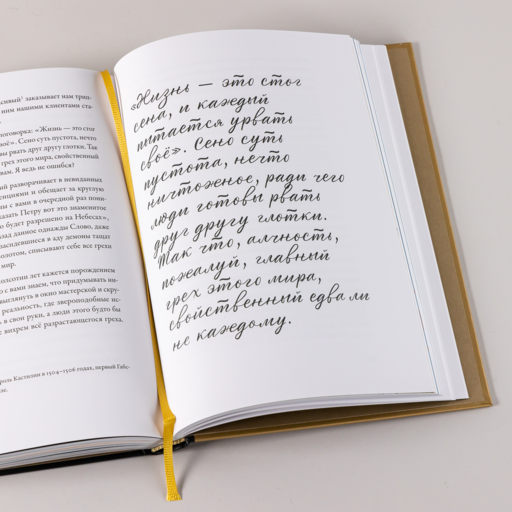 сивый¹ заказывает нам трип-
ним нашими клиентами ста-
поговорка: «Жизнь — это стог
воё». Сено суть пустота, нечто
вы рвать друг другу глотки. Так
грех этого мира, свойственный
вам. Я ведь не ошибся?
ий разворачивает в невиданных
енциями и обещает за круглую
ы с вами в очередной раз пови-
казать Петру вот это знаменитое
о будет разрешено на Небесах»,
лад данное однажды Слово, даже
засидевшиеся в аду демоны тащат
олотом, списывают себе все грехи
мир.
олсотни лет кажется порождением
о с вами знаем, что придумывать ни-
выглянуть в окно мастерской и скру-
реальность, где звероподобные ис-
в свои руки, а люди этого будто бы
е вихрем всё разрастающегося греха.
роль Кастилии в 1504–1506 годах, первый Габс-
«Жизнь — это стог
сена, и каждый
пытается урвать
своё». Сено суть
пустота, нечто
ничтожное, ради чего
люди готовы рвать
друг другу глотки.
Так что, алчность,
пожалуй, главный
грех этого мира,
свойственный едва ли
не каждому.